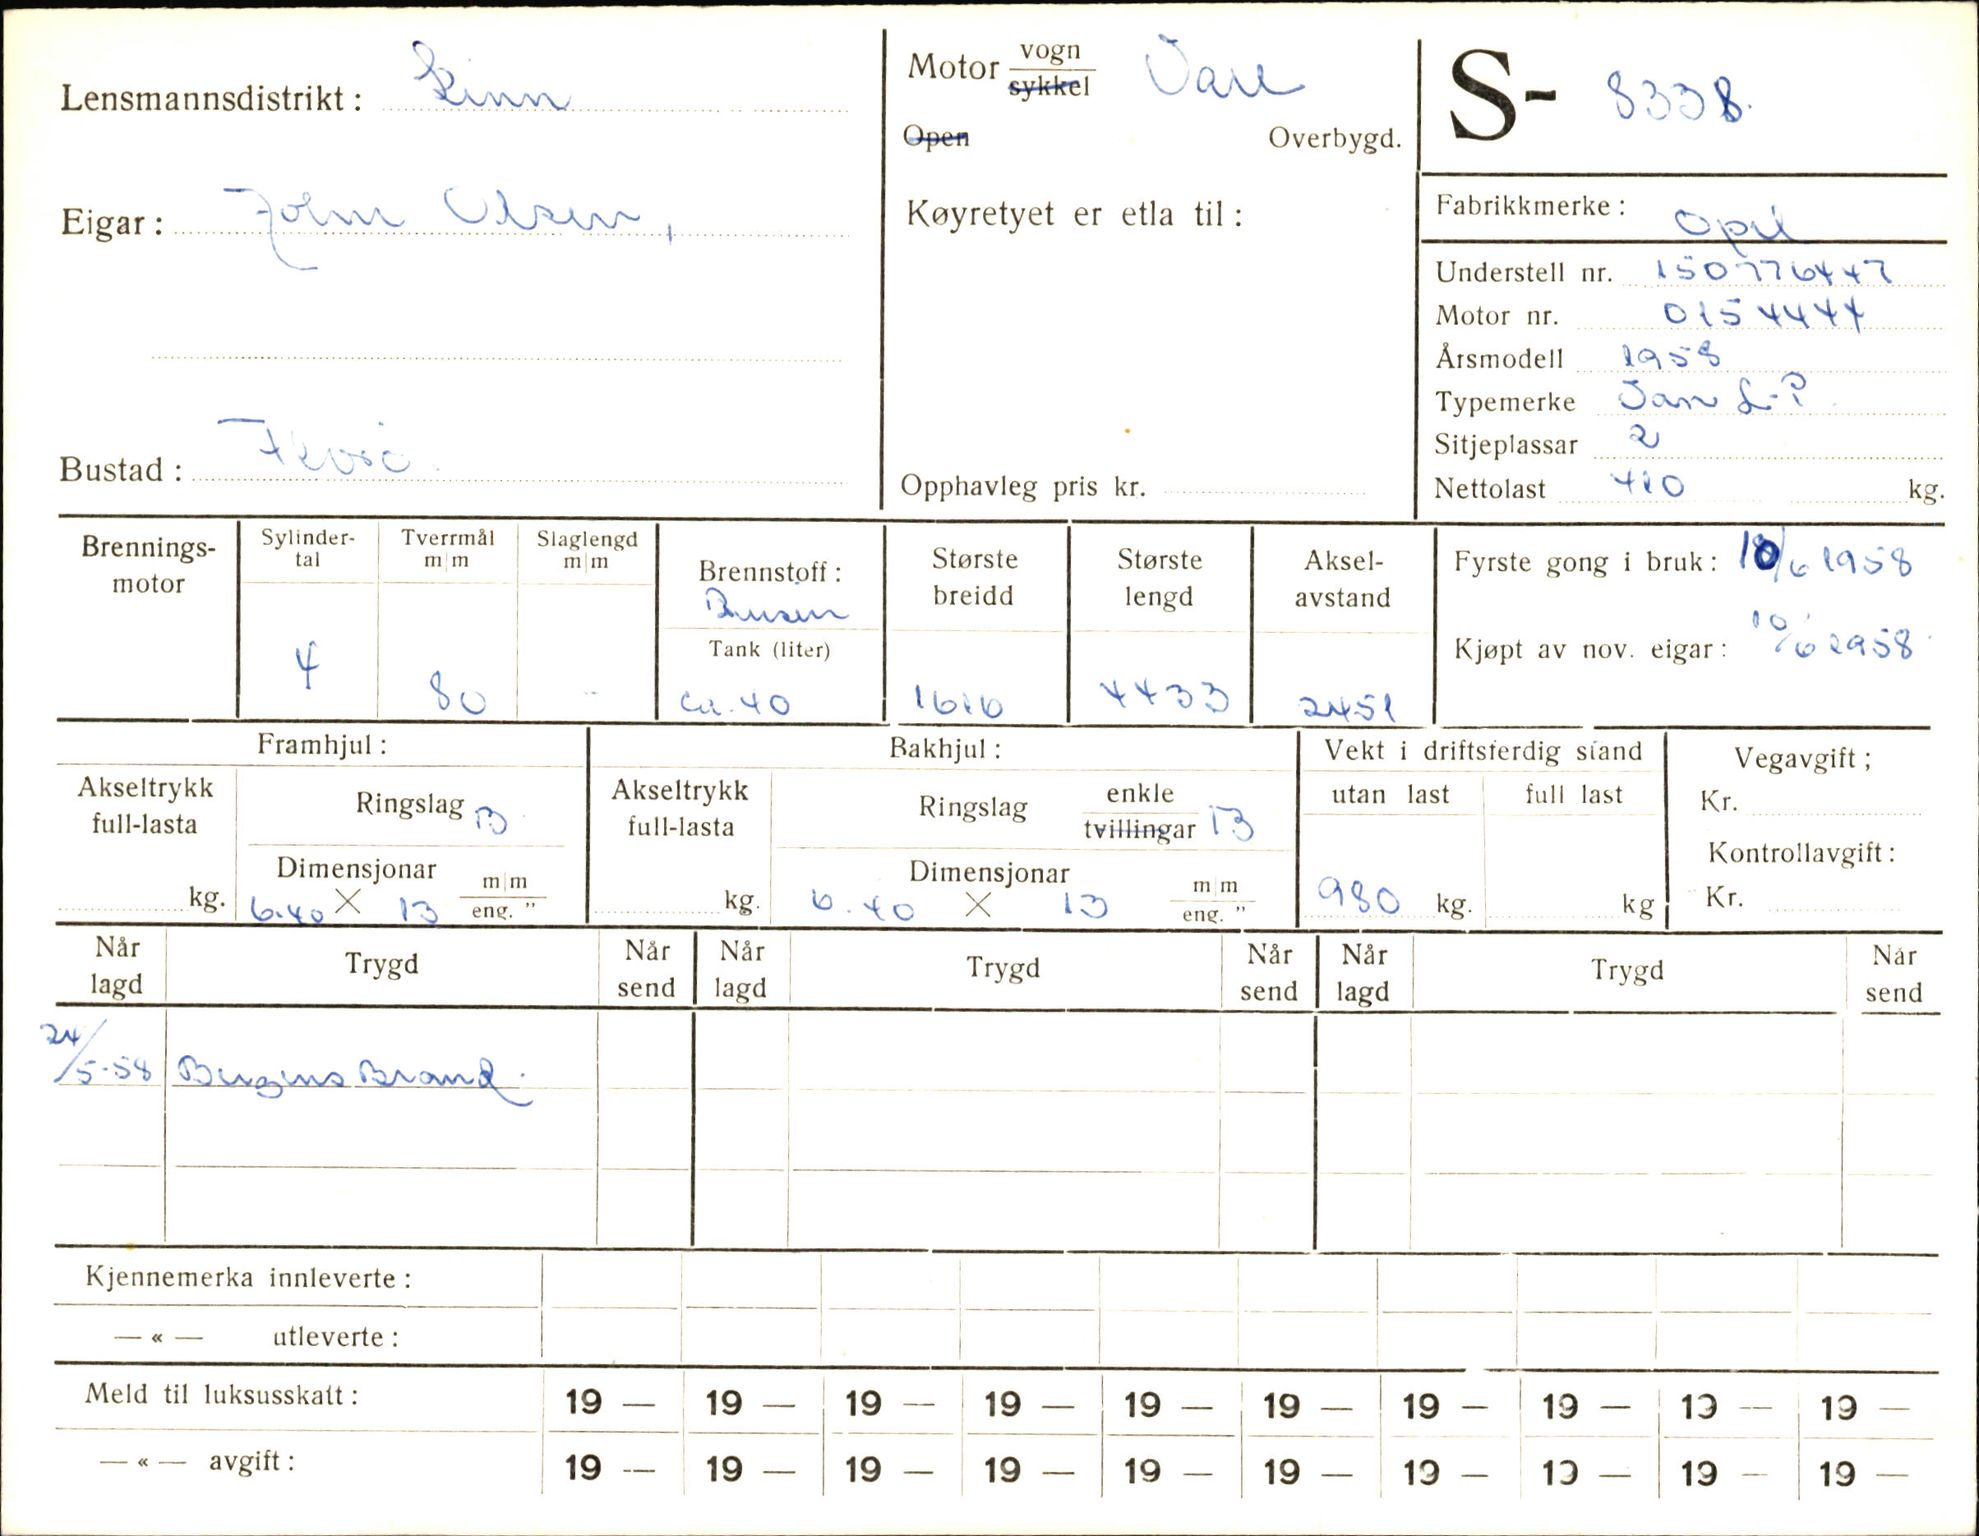 Lensmannsdistrikt: Kinn
Eigar: John Olsen,
Bustad:
Motor vogn
sykkel
Vare
Open Overbygd.
Køyretyet er etla til:
Opphavleg pris kr.
S- 8338.
Fabrikkmerke: Opel
Understell nr. 150776447
Motor nr. 0154444
Årsmodell 1958
Typemerke Van L-P.
Sitjeplassar 2
Nettolast 410 kg.
Brennings-
motor
Sylinder-
tal
4
Tverrmål
m|m
80
Slaglengd
m|m
-
Brennstoff:
Bensin
Tank (liter)
ca. 40
Største
breidd
1616
Største
lengd
4433
Aksel-
avstand
2451
Fyrste gong i bruk: 10/6 1958
Kjøpt av nov. eigar: 10/6 1958
Framhjul:
Akseltrykk
full-lasta
kg.
Ringslag B
Dimensjonar
6.40 X 13
m|m
eng. "
Bakhjul:
Akseltrykk
full-lasta
kg.
Ringslag
enkle
tvillingar
B
Dimensjonar
6.40 X 13
m|m
eng. "
Vekt i driftsferdig stand
utan last full last
980 kg. kg
Vegavgift;
Kr.
Kontrollavgift:
Kr.
Når
lagd
Trygd
Når
send
Når
lagd
Trygd
Når
send
Når
lagd
Trygd
Når
send
24/5-58 Bergens Brand.
Kjennemerka innleverte:
— « — utleverte:
Meld til luksusskatt: 19 — 19 — 19 — 19 — 19 — 19 — 19 — 19 — 19 — 19 —
— « — avgift: 19 — 19 — 19 — 19 — 19 — 19 — 19 — 19 — 19 — 19 —